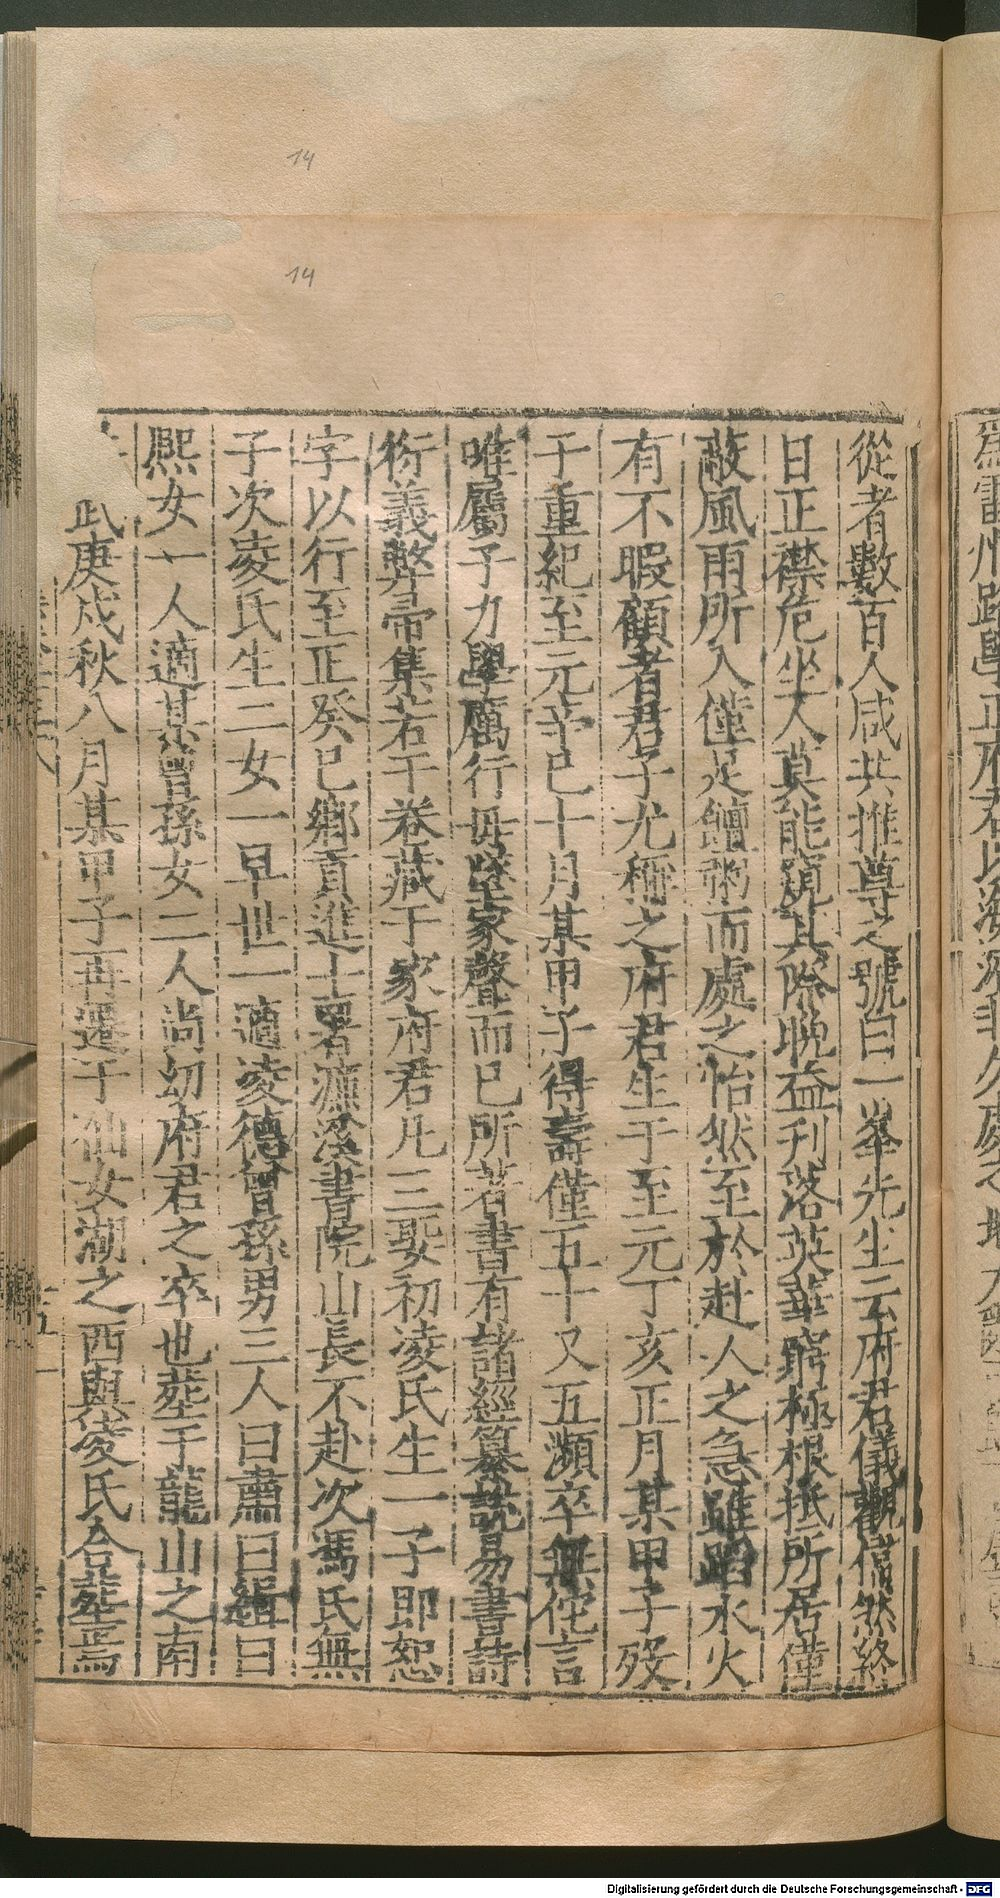 14
14
從者數百人咸共推尊之號曰一峯先生云府君儀觀儼然終
日正襟危坐人莫能窺其際晚益刋落英華窮極根柢所居僅
蔽風雨所入僅足饘粥而處之怡然至於赴人之急雖蹈水火
有不暇顧者君子尤稱之府君生于至元丁亥正月某甲子歿
于重紀至元辛巳十月某甲子得壽僅五十又五瀕卒無佗言
唯屬子力學厲行毋墜家聲而已所著書有諸經纂說易書詩
衍義弊帚集若干卷藏于家府君凡三娶初凌氏生一子即恕
字以行至正癸巳鄉貢進士署濂溪書院山長不赴次馮氏無
子次凌氏生二女一早世一適凌德曾孫男三人曰肅曰緝曰
熙女一人適其曾孫女二人尚幼府君之卒也塟于龍山之南
武庚戍秋八月某甲子再遷于仙女湖之西與凌氏合塟焉
Digitalisierung gefördert durch die Deutsche Forschungsgemeinschaft - DFG